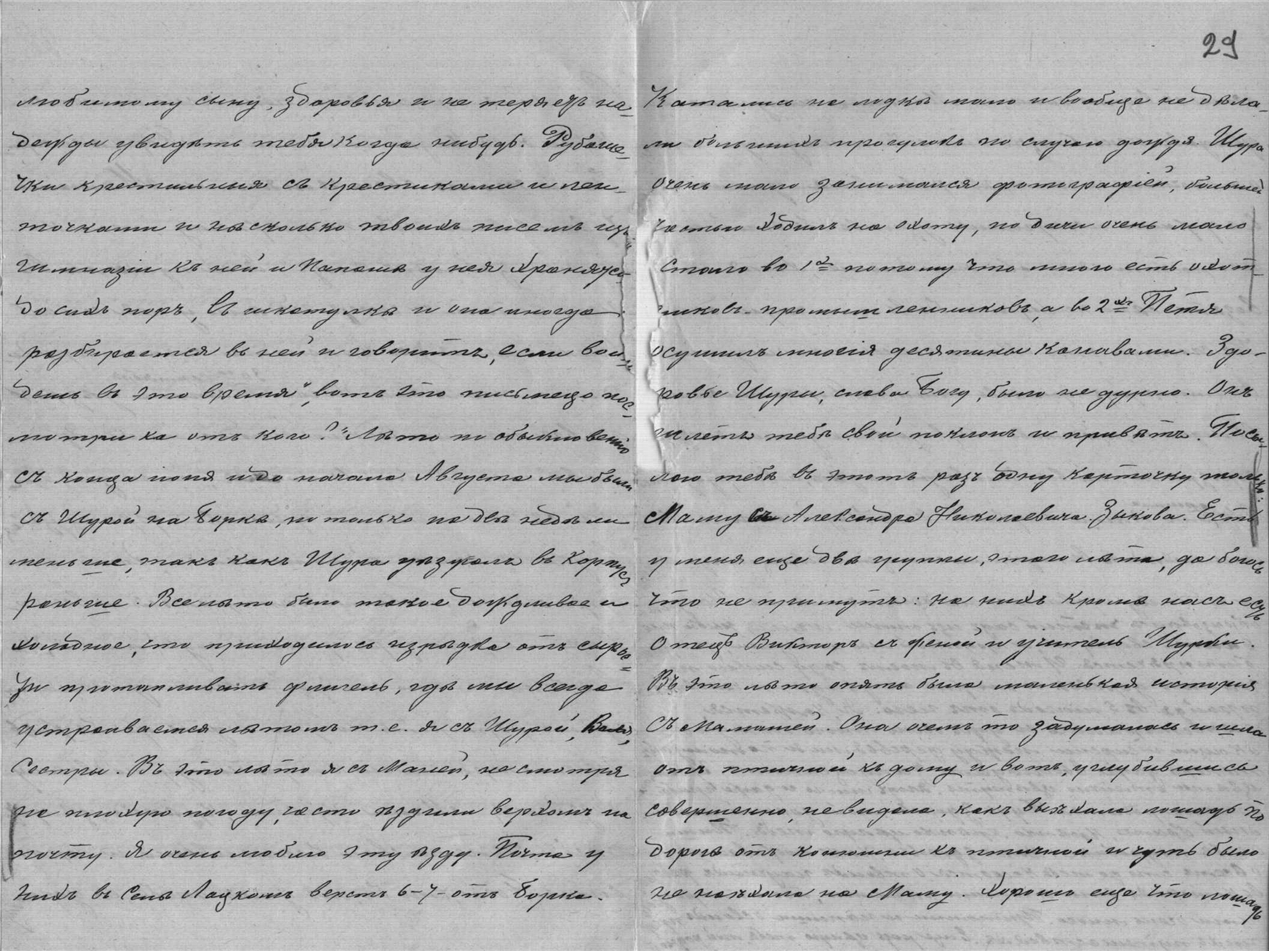 любимому сыну, здоровья и не теряетъ на-
дежды увидѣть тебя когда нибудь. Рубаше-
чки крестильныя съ крестиками и лен-
точками и нѣсколько твоихъ писемъ изъ
гимназіи къ ней и Папашѣ у нея хранятся
до сихъ поръ, въ шкатулкѣ и она иногда
разбирается въ ней и говоритъ, если вой-
дешь въ это время „вотъ это письмецо пос-
мотри ка отъ кого?“ Лѣто по обыкновенію
съ конца іюня и до начала Августа мы были
съ Шурой на Боркѣ, но только на двѣ недѣли
меньше, такъ какъ Шура уѣзжалъ въ Корпусъ
раньше. Все лѣто было такое дождливое и
холодное, что приходилось изрѣдка отъ сырос-
ти протапливать флигель, гдѣ мы всегда
устраиваемся лѣтомъ т.е. я съ Шурой,
Сестры. Въ это лѣто я съ Маней, не смотря
на плохую погоду, часто ѣздили верхомъ на
почту. Я очень люблю эту ѣзду. Почта у
нихъ въ Селѣ Лацкомъ верстъ 6-7- отъ Борка.
29
Катались на лодкѣ мало и вообще не дѣла-
ли большихъ прогулокъ по случаю дождя. Шура
очень мало занимался фотографіей, большей
частью ходилъ на охоту, но дичи очень мало
стало во 1ыхъ потому что много есть охот-
никовъ промышленниковъ, а во 2ыхъ Петя
осушилъ многія десятины канавами. Здо-
ровье Шуры, слава Богу, было не дурно. Онъ
шлетъ тебѣ свой поклонъ и привѣтъ. Посы-
лаю тебѣ въ этотъ разъ одну карточку только:
Маму и Александра Николаевича Зыкова. Есть
у меня еще двѣ группы этого лѣта, да боюсь
что не примутъ: на нихъ кромѣ насъ есть
Отецъ Викторъ съ Феней и учитель Шурки.
Въ это лѣто опять была маленькая исторія
съ Мамашей. Она о чемъ то задумалась и шла
отъ птичной къ дому и вотъ, углубившись
совершенно, не видела, какъ выѣхала лошадь по
дорогѣ отъ конюшни къ птичной и чуть было
не наѣхала на Маму. Хорошо еще что лошадь